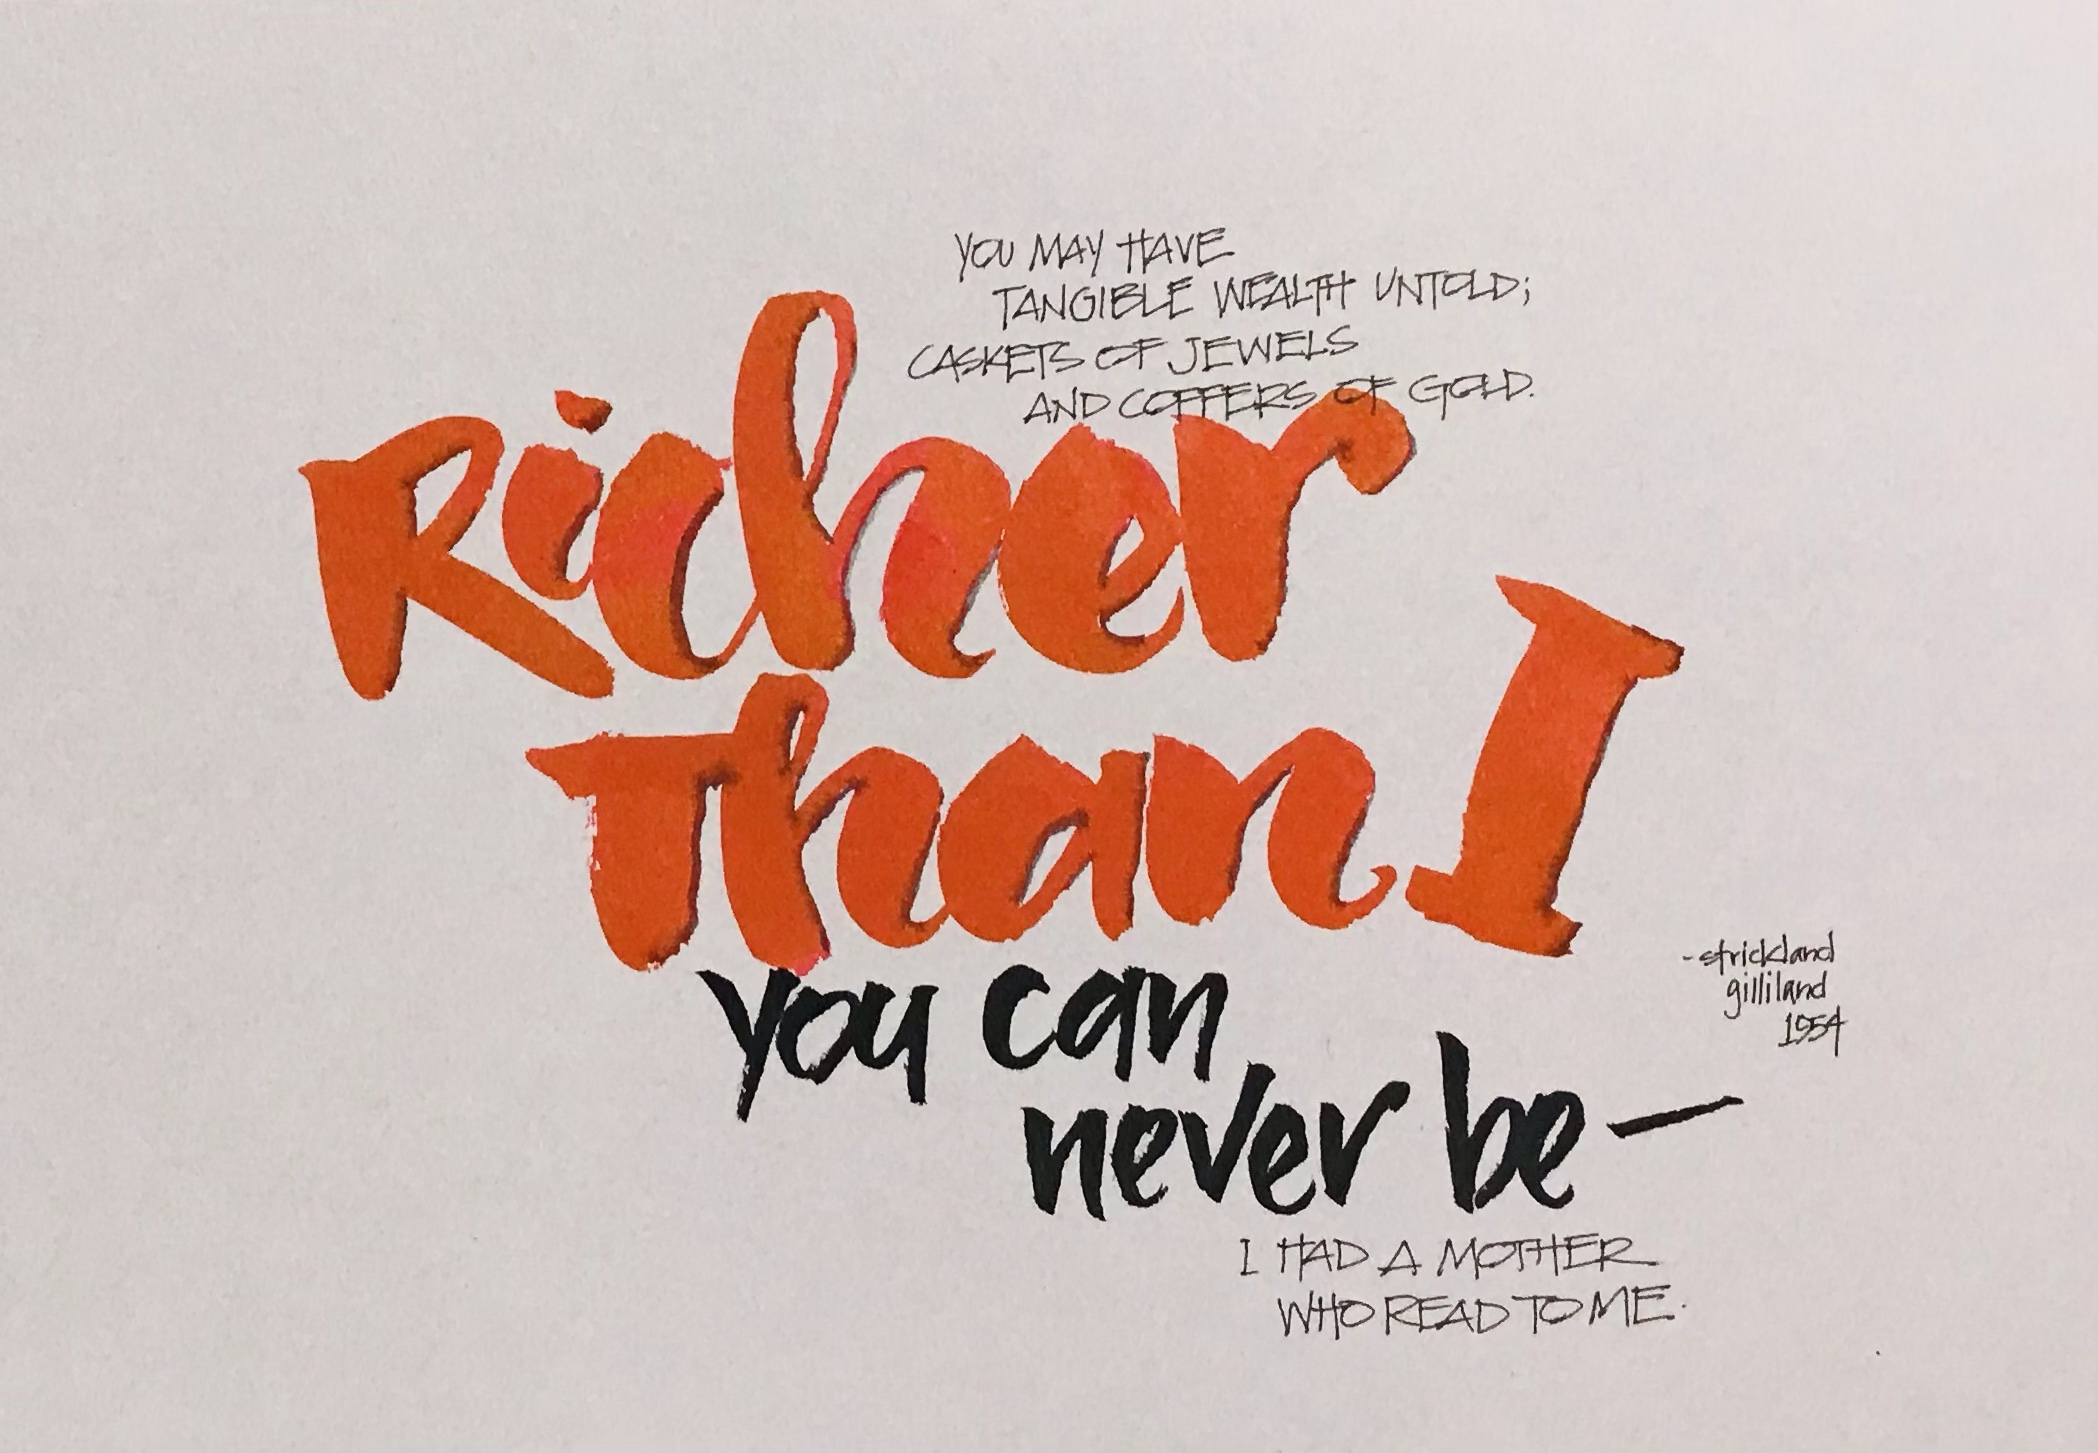 YOU MAY HAVE
TANGIBLE WEALTH UNTOLD;
CASKETS OF JEWELS
AND COFFERS OF GOLD.
Richer
Than I
you can
never be—
I HAD A MOTHER
WHO READ TO ME.
-strickland
gilliland
1954